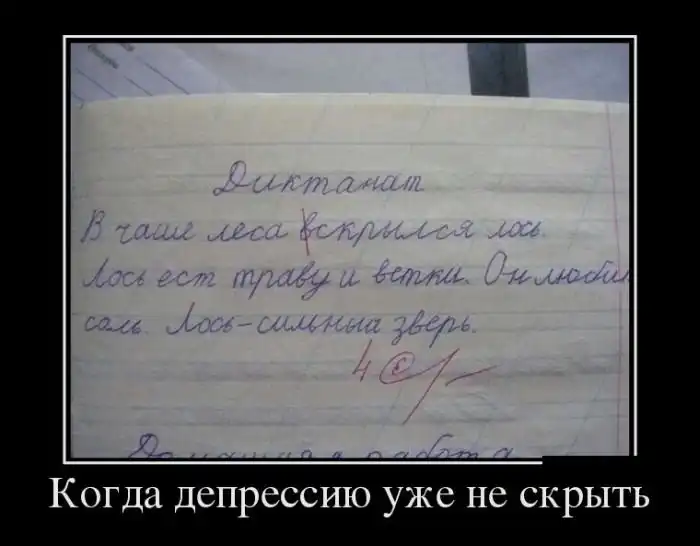 Диктанат
В чаше леса вскрылся лось.
Лось ест траву и ветки. Он любит
соль. Лось-сильныа зверь.
4
Домашняя работа
Когда депрессию уже не скрыть